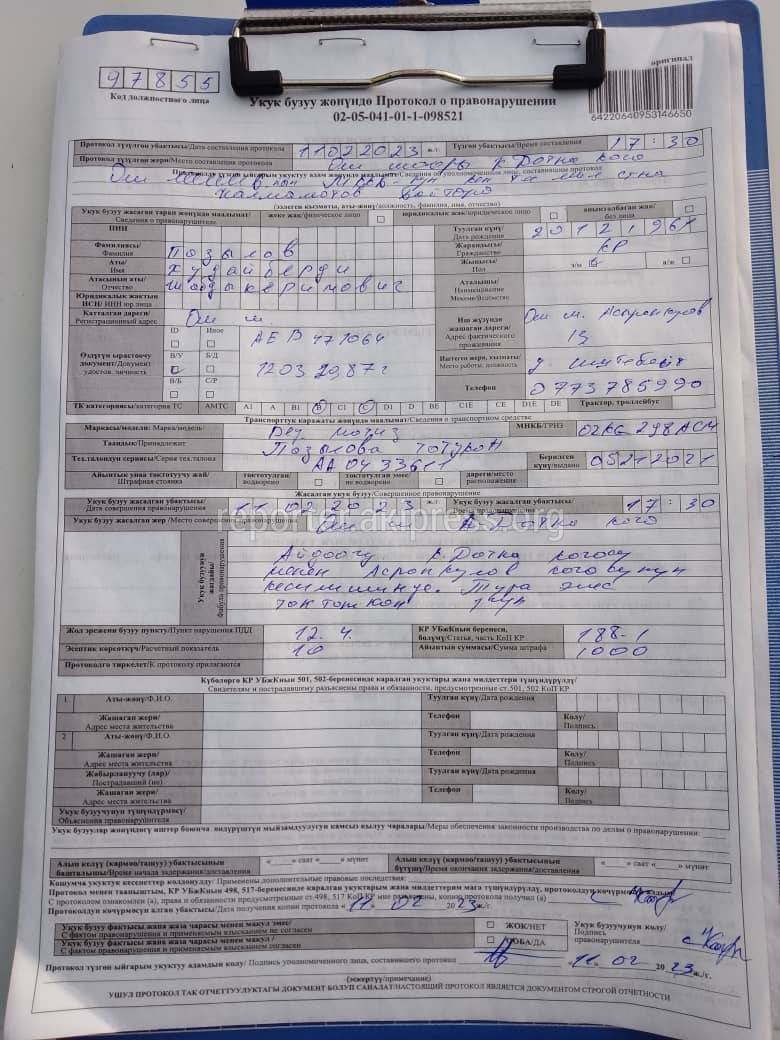 оригинал
97855
Код должностнего лица
Укук бузуу жөнүндө Протокол о правонарушении
02-05-041-01-1-098521
64220640953146650
Протокол түзүлгөн убактысы/Дата составления протокола 11022023 ж./г. Түзгөн убактысы/Время составления 17:30
Протокол түзүлгөн жери/Место составления протокола Ош шаары К.Датка көчө
Протоколду түзүүчү ыйгарым укуктуу адам жөнүндө маалымат/Сведения об уполномоченном лице, составившем протокол
(ээлеген кызматы, аты-жөнү/должность, фамилия, имя, отчество)
Укук бузуу жасаган тарап жөнүндө маалымат/ Сведения о правонарушителе
жеке жак/физическое лицо
юридикалык жак/юридическое лицо
аныкталбаган жак/ без лица
ПИН
Туулган күнү/ Дата рождения 20121961
Фамилиясы/ Фамилия Позылов
Жарандыгы/ Гражданство КР
Аты/ Имя Худайберди
Жынысы/ Пол э/м а/ж
Атасынын аты/ Отчество
Аталышы/ Наименование Мекеме/Ведомство
Юридикалык жактын ИСН/ ИНН юр.лица
Катталган дареги/ Регистрационный адрес Ош ш.
Иш жүзүндө жашаган дареги/ Адрес фактического проживания Ош ш.
Өздүгүн ырастоочу документ/Документ удостов. личность
ID Иное
AEB 471064
В/У Б/Д
В/Б С/Р
Иштеген жери, кызматы/ Место работы, должность
Телефон 0773785990
ТК категориясы/категория ТС АМТС A1 A B1 B C1 C D1 D BE C1E CE D1E DE Трактор, троллейбус
Транспорттук каражаты жөнүндө маалымат/Сведения о транспортном средстве
Маркасы/модели: Марка/модель Деу матиз МНКБ/ГРНЗ 02KG298ACM
Таандык/Принадлежит Позылова
Тех.талондун сериясы/Серия тех.талона АА 0433611 Берилген күнү/выдано 05212021
Айыптык унаа токтотуучу жай/ Штрафная стоянка
токтотулган/ водворено
токтотулган эмес/ не водворено
дареги/место расположения
Жасалган укук бузуу/Совершенное правонарушение
Укук бузуу жасалган убактысы/ Дата совершения правонарушения 11022023 Укук бузуу жасалган убактысы/ 17:30
Укук бузуу жасалган жер /Место совершения правонарушения Ош ш. К.Датка көчө
reporter.akipress.org
Укук бузуунун жагдайы/ Фабула правонарушения
Айдоочу К.Датка көчөсү
менен Асранкулов көчөсүнүн
кесилишинде. Тура эмес
токтоткон үчүн
Жол эрежени бузуу пункту/Пункт нарушения ПДД 12.4. КР УБжКнын беренеси, бөлүмү/Статья, часть КоП КР 188-1
Эсептик көрсөткүч/Расчетный показатель 10 Айыптын суммасы/Сумма штрафа 1000
Протоколго тиркелет/К протоколу прилагаются
Күбөлөргө КР УБжКнын 501, 502-беренесинде каралган укуктары жана милдеттери түшүндүрүлдү/
Свидетелям и пострадавшему разъяснены права и обязанности, предусмотренные ст.501, 502 КоП КР
1 Аты-жөнү/Ф.И.О. Туулган күнү/Дата рождения
Жашаган жери/ Адрес места жительства Телефон Колу/ Подпись
2 Аты-жөнү/Ф.И.О. Туулган күнү/Дата рождения
Жашаган жери/ Адрес места жительства Телефон Колу/ Подпись
Жабырлануучу (лар)/ Пострадавший (не) Туулган күнү/Дата рождения
Жашаган жери/ Адрес места жительства Телефон Колу/ Подпись
Укук бузуучунун түшүндүрмөсү/ Объяснения правонарушителя
Укук бузуулар жөнүндөгү иштер боюнча өндүрүштүн мыйзамдуулугун камсыз кылуу чаралары/Меры обеспечения законности производства по делам о правонарушении:
Алып келүү (кармоо/ташуу) убактысынын башталышы/Время начала задержания/доставления « » саат « » мүнөт
Алып келүү (кармоо/ташуу) убактысынын бүтүшү/Время окончания задержания/доставления « » саат « » мүнөт
Кошумча укуктук кесепеттер колдонулду/ Применены дополнительные правовые последствия:
Протокол менен тааныштым, КР УБжКнын 498, 517-беренесинде каралган укуктарым жана милдеттерим мага түшүндүрүлдү, протоколдун көчүрмөсүн алдым/
С протоколом ознакомлен (а), права и обязанности предусмотренные ст.498, 517 КоП КР мне разъяснены, копию протокола получил (а)
Протоколдун көчүрмөсүн алган убактысы/ Дата получения копии протокола « 11. 02 2023 ж./г.
Укук бузуу фактысы жана жаза чарасы менен макул эмес/
С фактом правонарушения и применяемым взысканием не согласен
ЖОК/НЕТ
Укук бузуу фактысы жана жаза чарасы менен макул /
С фактом правонарушения и применяемым взысканием согласен
ООБА/ДА
Укук бузуучунун колу/ Подпись правонарушителя
Протокол түзгөн ыйгарым укуктуу адамдын колу/ Подпись уполномоченного лица, составившего протокол 11.02 2023 ж./г.
(эскертүү/примечание)
УШУЛ ПРОТОКОЛ ТАК ОТЧЕТТУУЛУКТАГЫ ДОКУМЕНТ БОЛУП САНАЛАТ/НАСТОЯЩИЙ ПРОТОКОЛ ЯВЛЯЕТСЯ ДОКУМЕНТОМ СТРОГОЙ ОТЧЕТНОСТИ